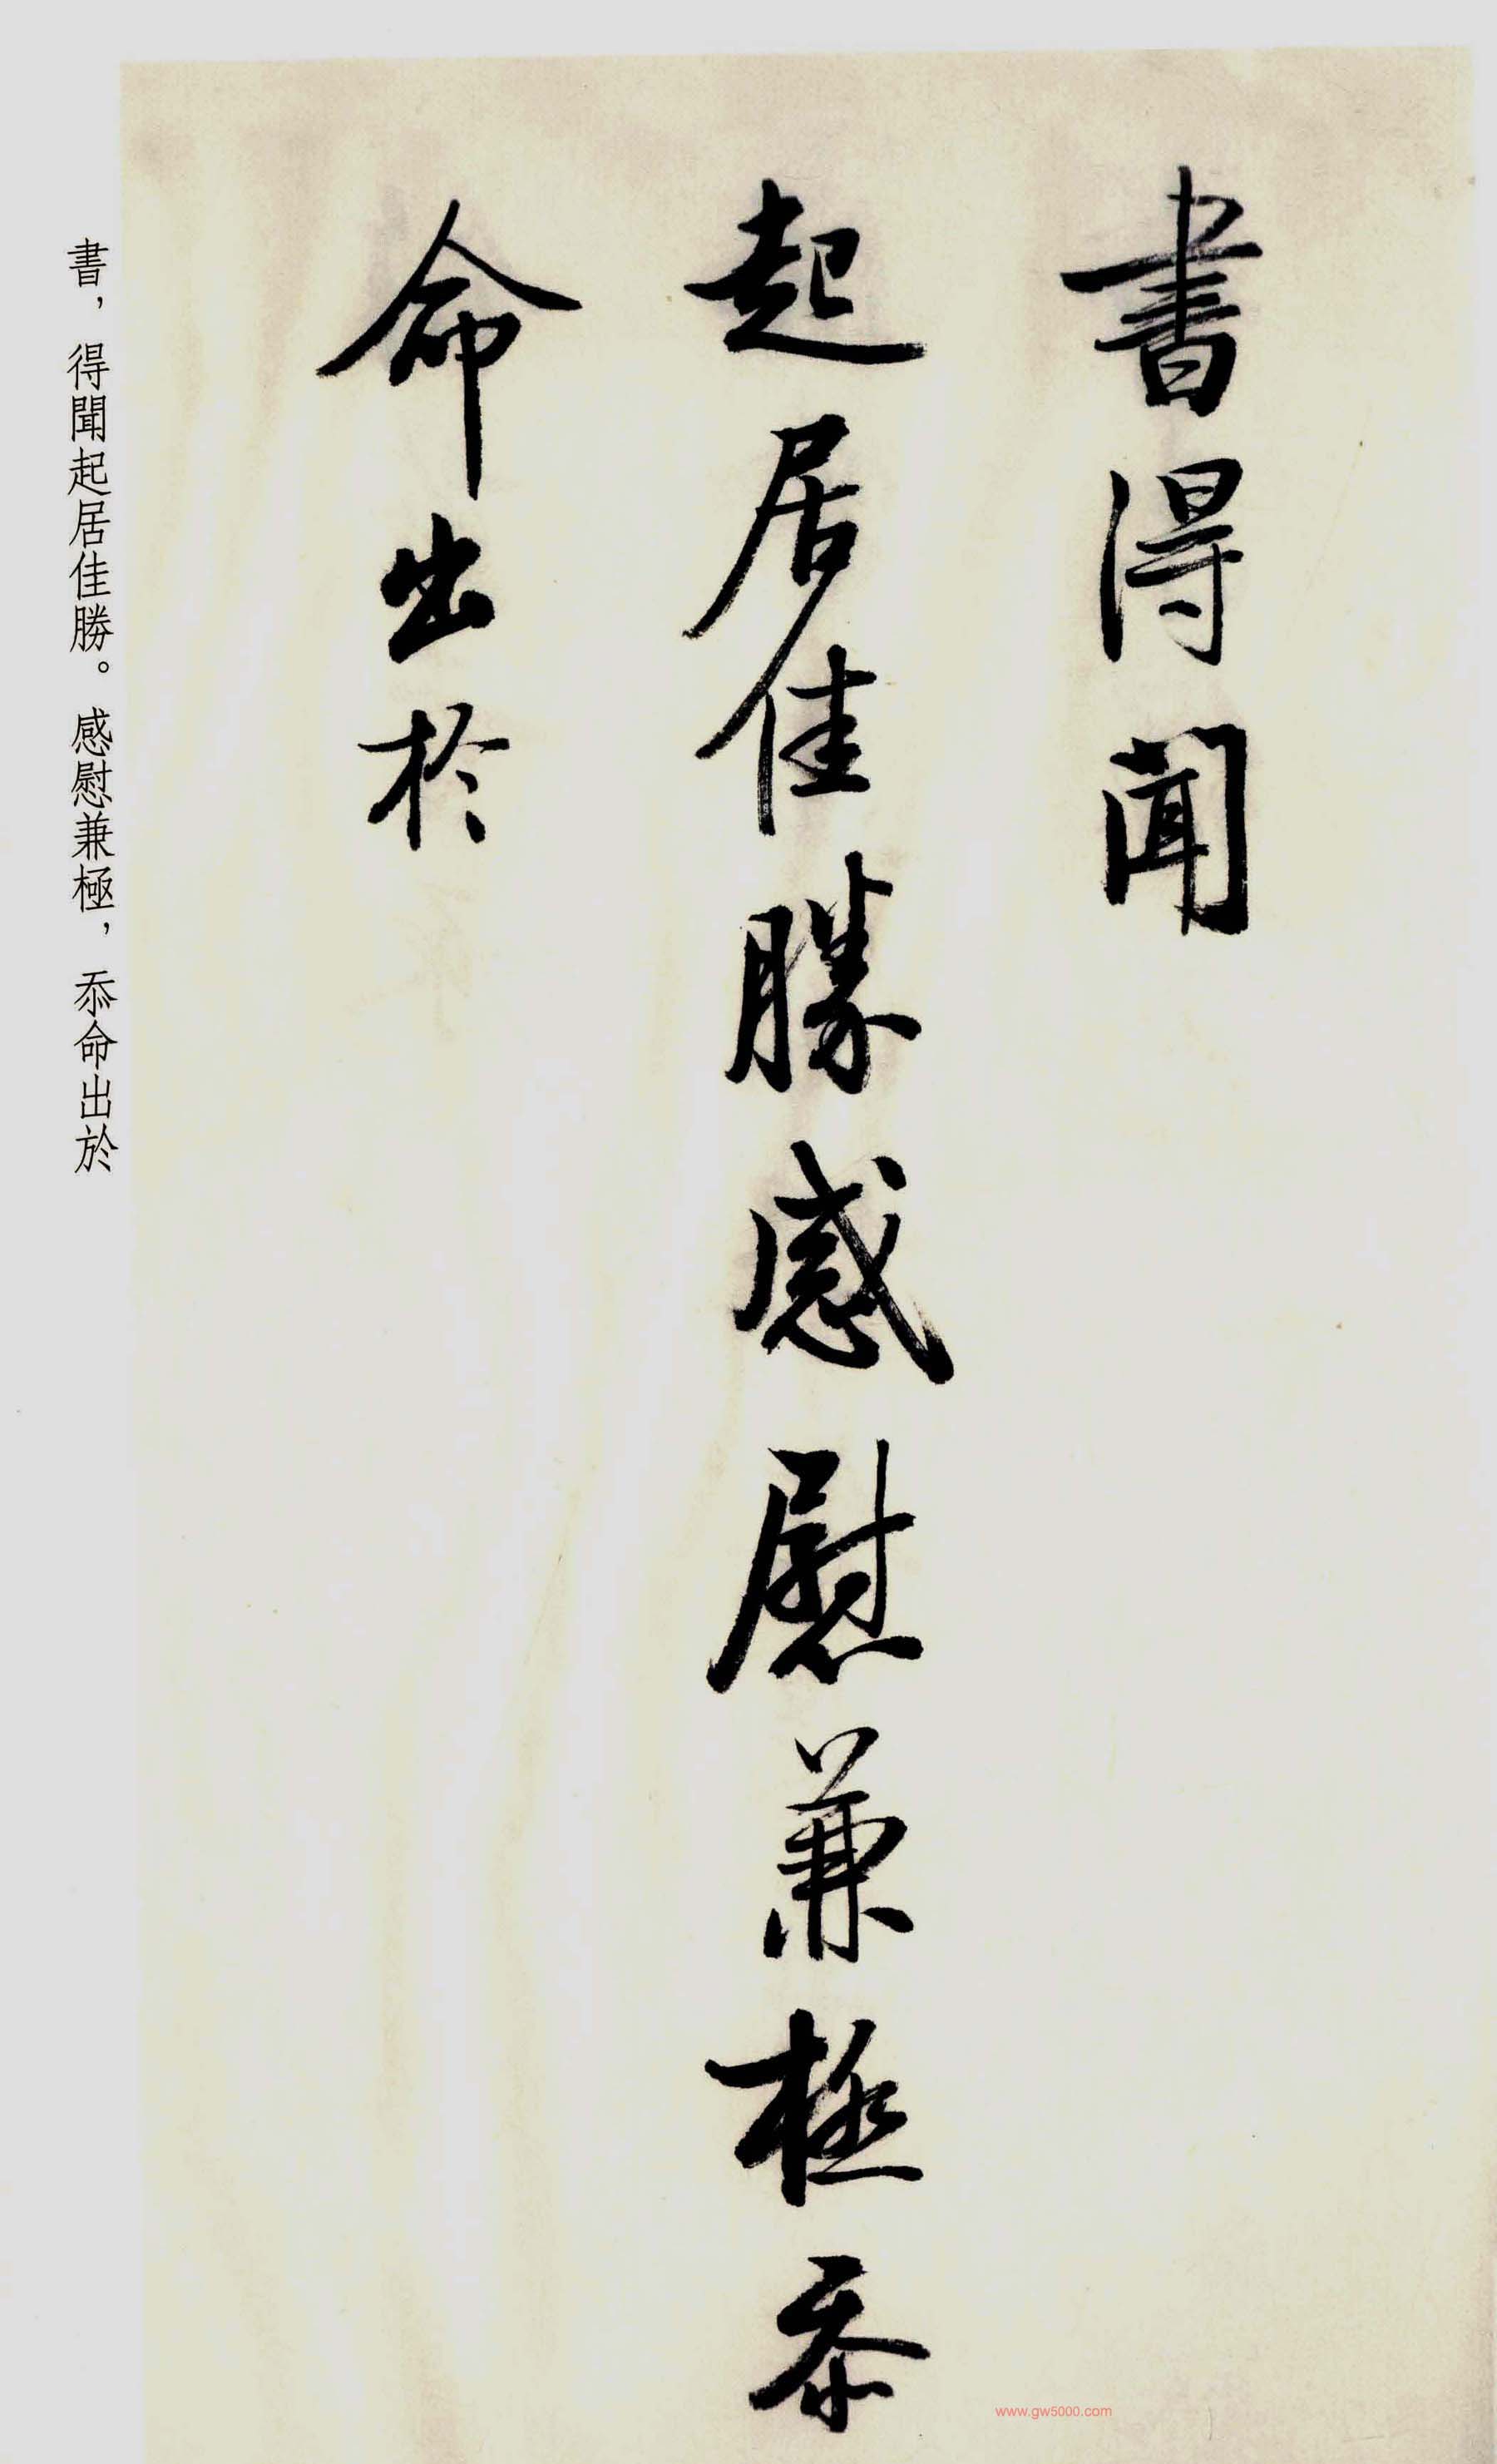 書得聞
起居佳勝感慰兼極忝
命出於
書，得聞起居佳勝。感慰兼極，忝命出於
www.gw5000.com